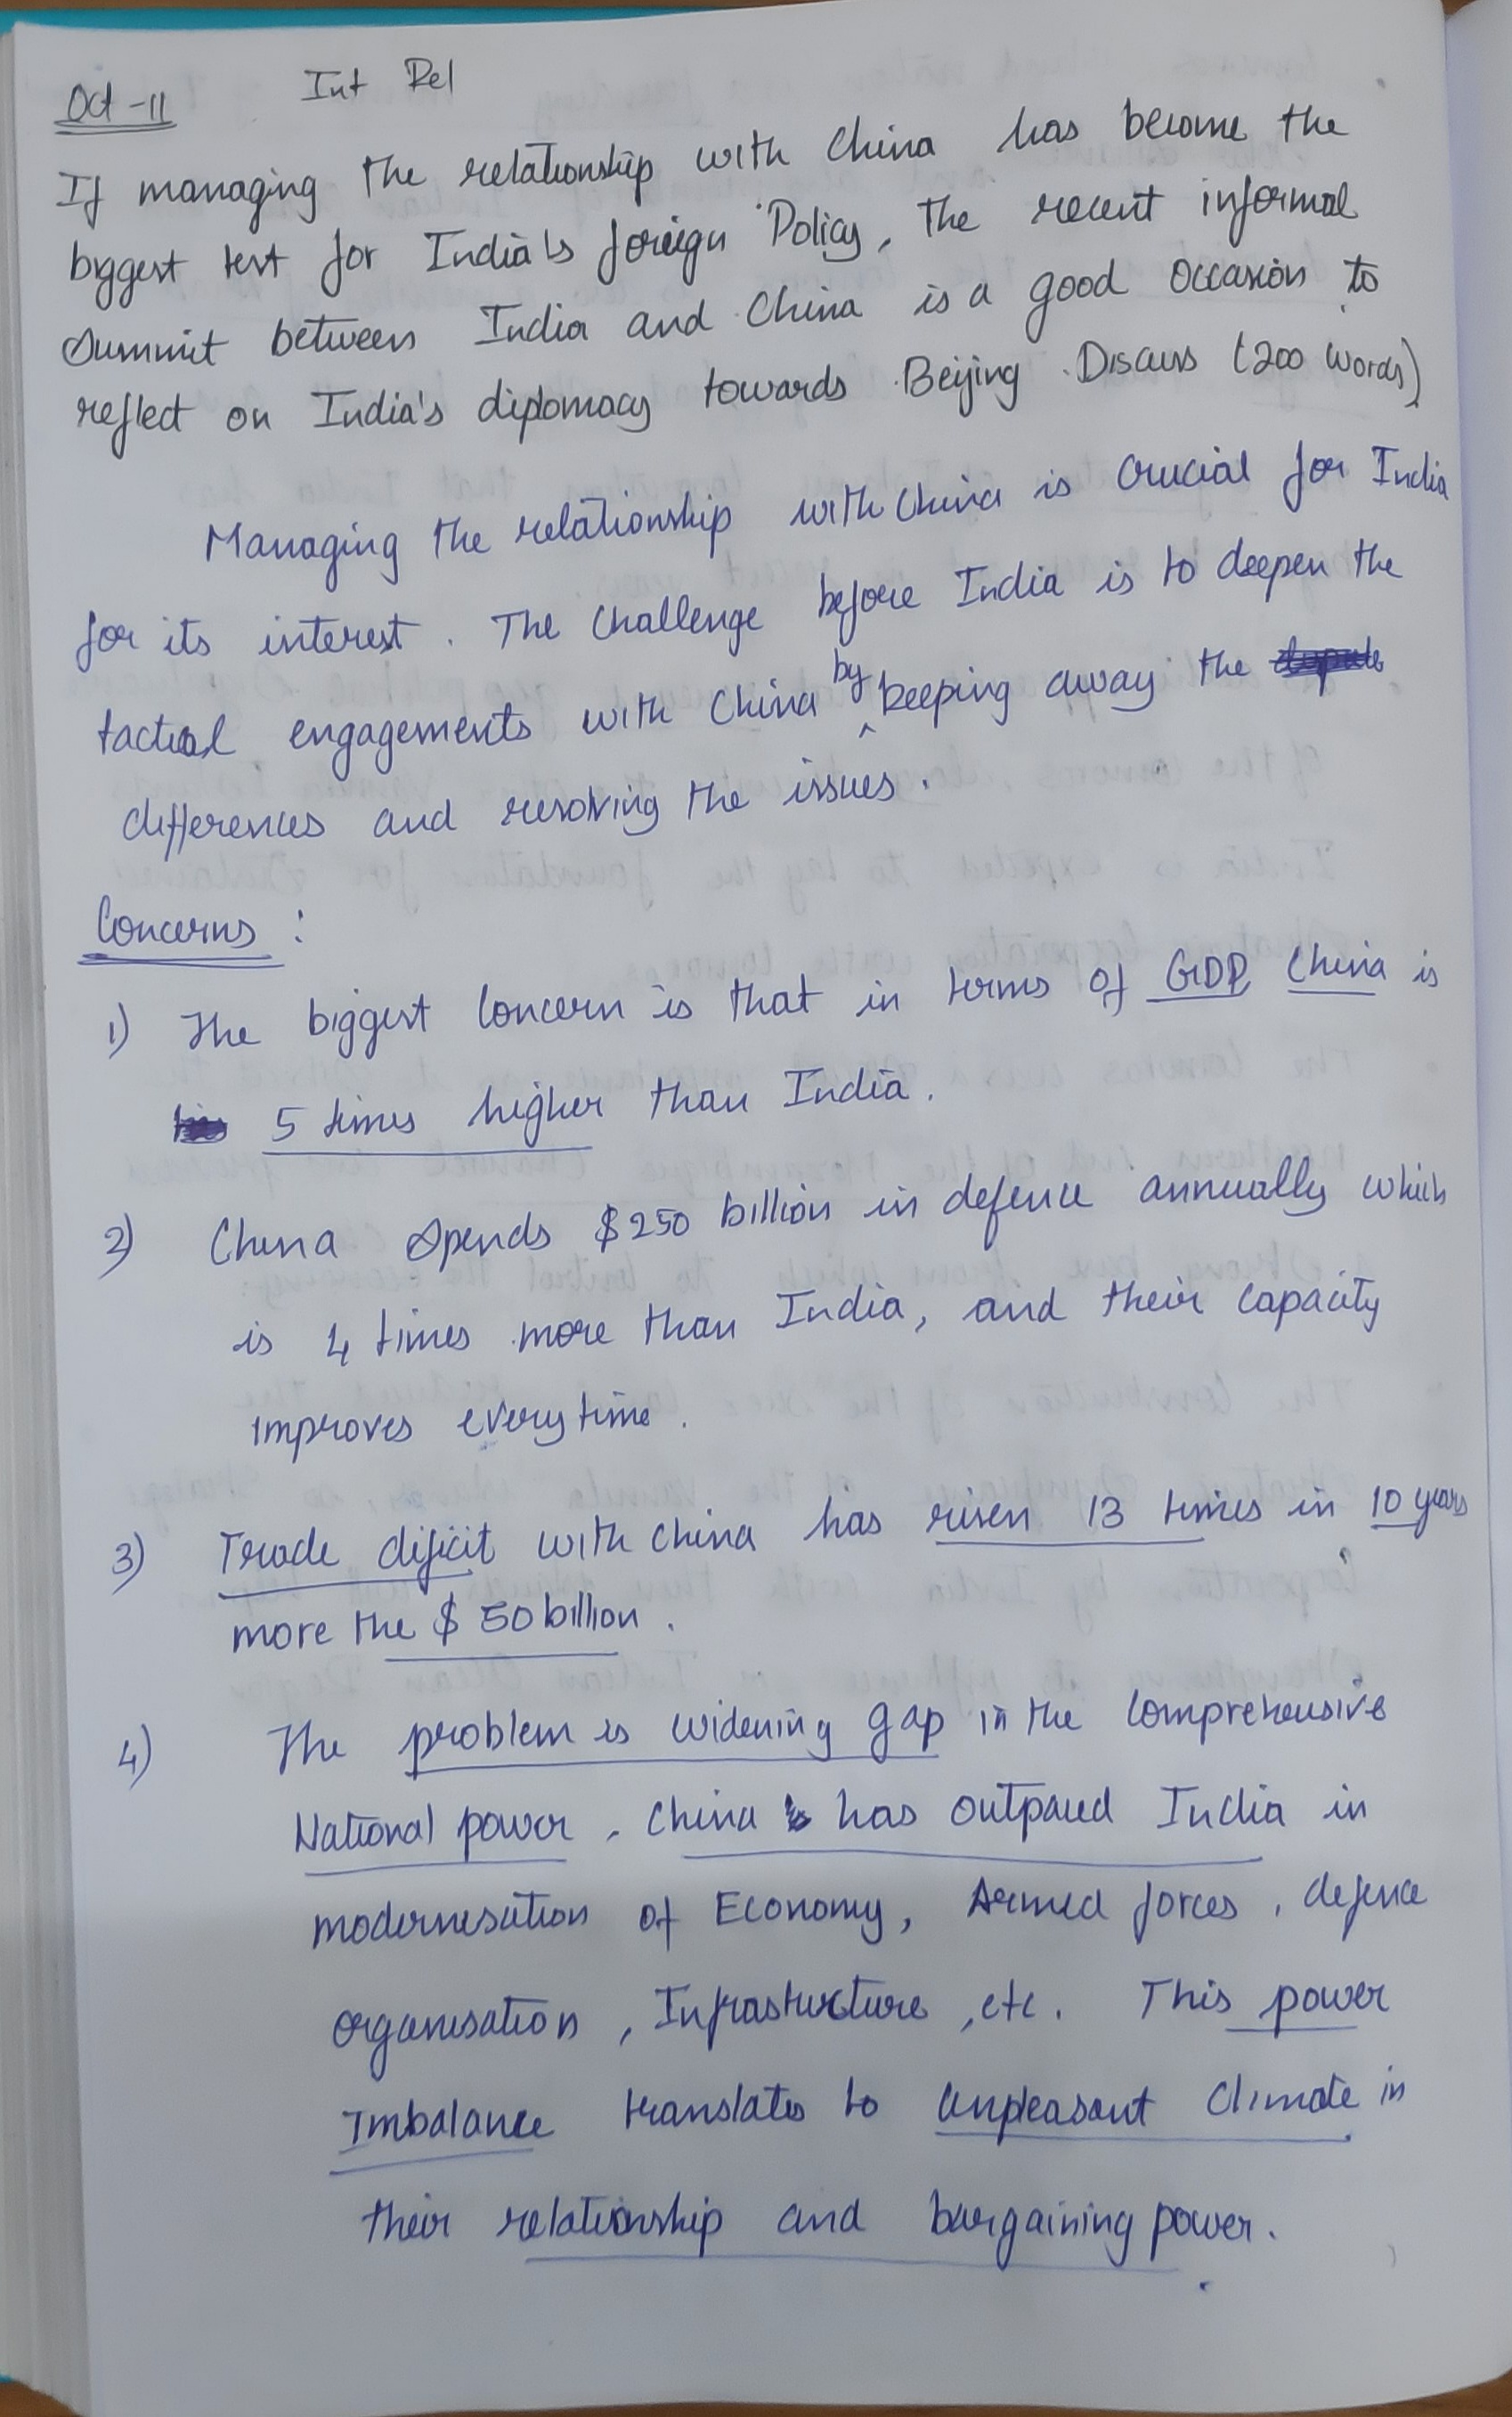 Oct-11 Int Rel
If managing the relationship with China has become the
biggest test for India's foreign Policy, The recent informal
Summit between India and China is a good occasion to
reflect on India's diplomacy towards Beijing. Discuss (200 words)
Managing the relationship with China is crucial for India
for its interest. The Challenge before India is to deepen the
tactical engagements with China by keeping away the
differences and resolving the issues.
Concerns :
1) The biggest Concern is that in terms of GDP, China is
5 times higher than India.
2) China Spends $250 billion in defence annually which
is 4 times more than India, and their capacity
improves everytime.
3) Trade deficit with China has risen 13 times in 10 years
more the $ 50 billion.
4) The problem is widening gap in the Comprehensive
National power, China has outpaced India in
modernisation of Economy, Armed forces, defence
organisation, Infrastructure, etc. This power
Imbalance translates to unpleasant Climate in
their relationship and bargaining power.